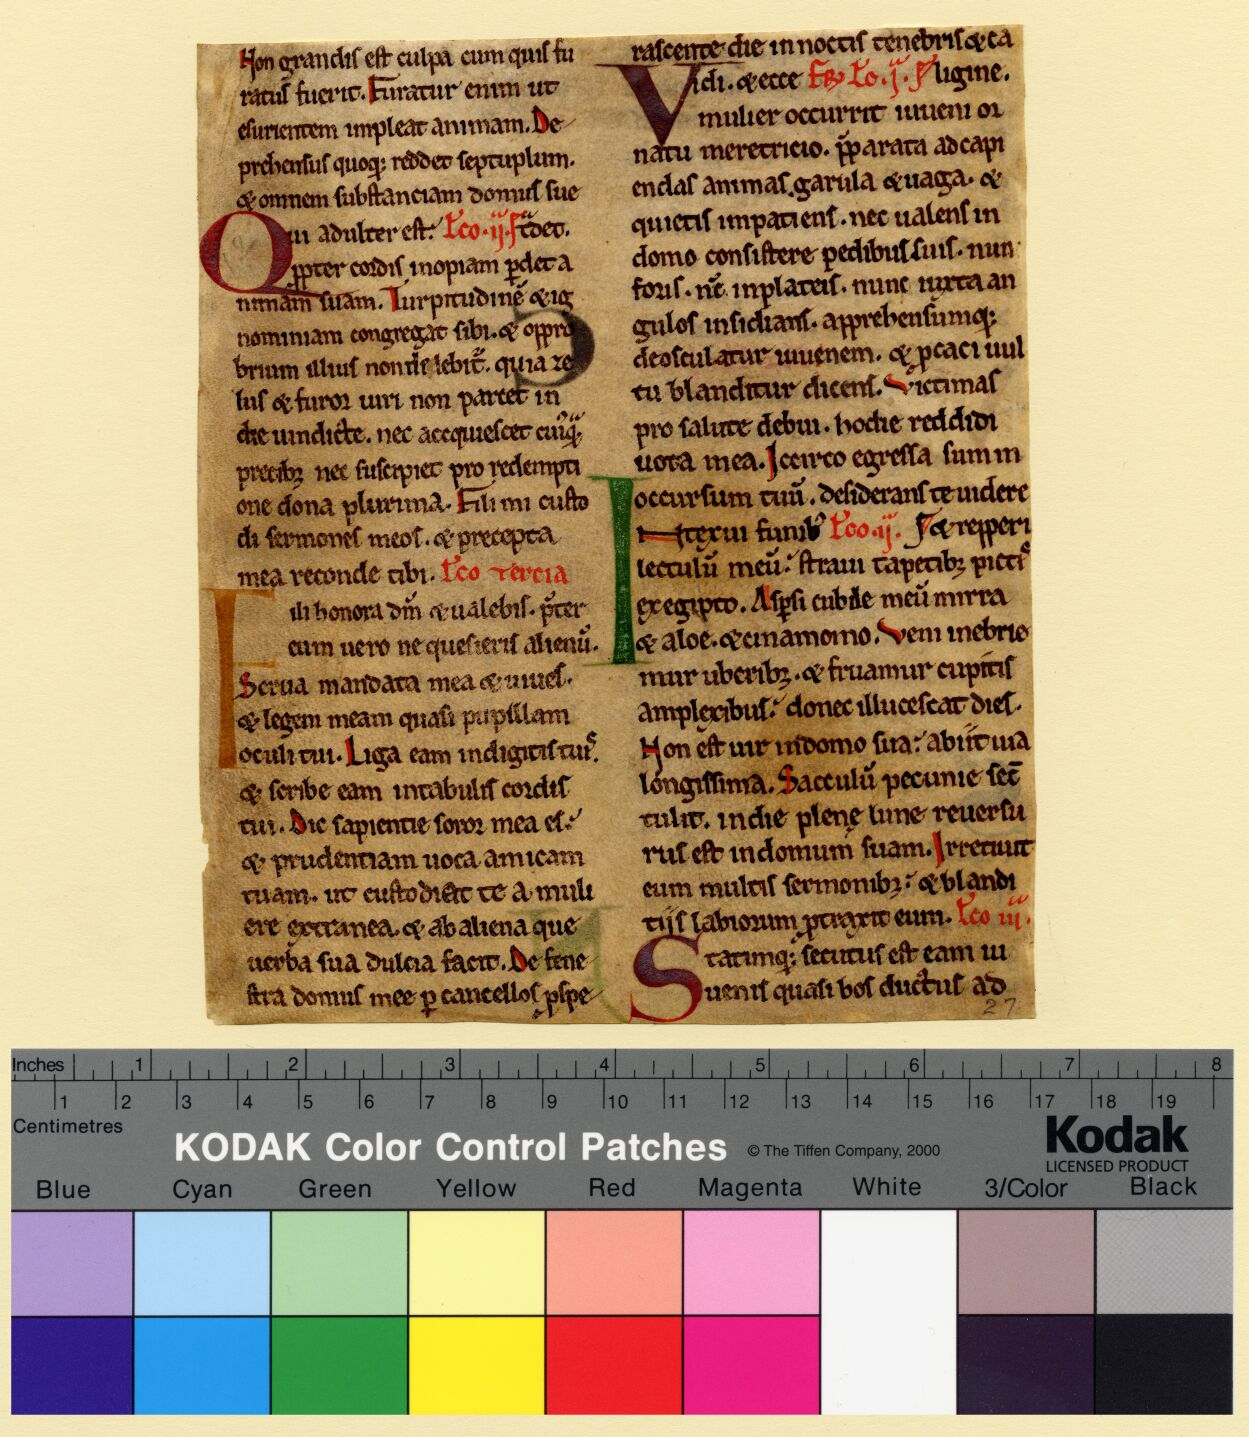 Non grandis est culpa cum quis fu
ratus̄ fuerit. Furatur enim ut
esurientem impleat animam. De
prehensus quoq; reddet septuplum.
& omnem substanciam domus sue
Qui adulter est. L̄co .ij. F tdet.
ꝓpter cordis inopiam ꝑdet a
nimam suam. Turpitudinē & ig
nominiam congregat sibi. & oppro
brium illius non delebit̄. quia ze
lus & furor uiri non parcet in
die uindicte. nec accquiescet cuiq;
precibꝫ nec suscipiet pro redempti
one dona plurima. Fili mi custo
di sermones meos. & precepta
mea reconde tibi. L̄co tercia
Fili honora dm̄ & ualebis. p̄ter
eum uero ne quesieris alienū.
Serua mandata mea & uiues.
& legem meam quasi pupillam
oculi tui. Liga eam in digitis tuis.
& scribe eam in tabulis cordis
tui. Dic sapientie soror mea es.
& prudentiam uoca amicam
tuam. ut custodiat te a muli
ere extranea. & ab aliena que
uerba sua dulcia facit. De fene
stra domus mee ꝑ cancellos ꝓspe
rascente die in noctis tenebris & ca
Vidi. & ecce L̄co .ij. ligine.
mulier occurrit iuueni or
natu meretricio. p̄parata ad capi
endas animas. garula & uaga. &
quietis impatiens. nec ualens in
domo consistere pedibus suis. nun
foris. nc̄ in plateis. nunc iuxta an
gulos insidians. apprehensumq;
deosculatur iuuenem. & ꝓcaci uul
tu blanditur dicens. Victimas
pro salute debui. hodie reddidi
uota mea. Icirco egressa sum in
occursum tuū. desiderans te uidere
Intexui funibꝰ L̄co .ij. & repperi
lectulū meū. straui tapetibꝫ pictis
ex egipto. Aspersi cubile meū mirra
& aloe. & cinamomo. Veni inebrie
mur uberibꝫ. & fruamur cupitis
amplexibus. donec illucescat dies.
Non est uir in domo sua. abiit uia
longissima. Sacculū pecunie secū
tulit. in die plenę lune reuersu
rus est in domum suam. Irretiuit
eum multis sermonibꝫ. & blandi
tiis labiorum ꝓtraxit eum. L̄co iij.
Statimq; secutus est eam iu
uenis quasi bos ductus ad
27
Inches 1 2 3 4 5 6 7 8
1 2 3 4 5 6 7 8 9 10 11 12 13 14 15 16 17 18 19
Centimetres
KODAK Color Control Patches © The Tiffen Company, 2000
Kodak
LICENSED PRODUCT
Blue Cyan Green Yellow Red Magenta White 3/Color Black